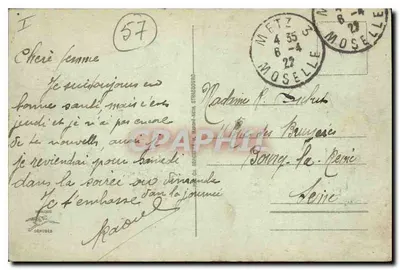 I
57
METZ 3
4 35
6-4
22
MOSELLE
6-4
22
MOSELLE
Chère femme
Je suis toujours en
bonne santé mais c'est
jeudi et je n'ai pas encore
de tes nouvelles, aussi je
reviendrai pour samedi
dans la soirée ou dimanche
dans la journée
Je t'embrasse
Raoul
Madame R.
Rue des Bruyères
la
Seine
CPARAMA